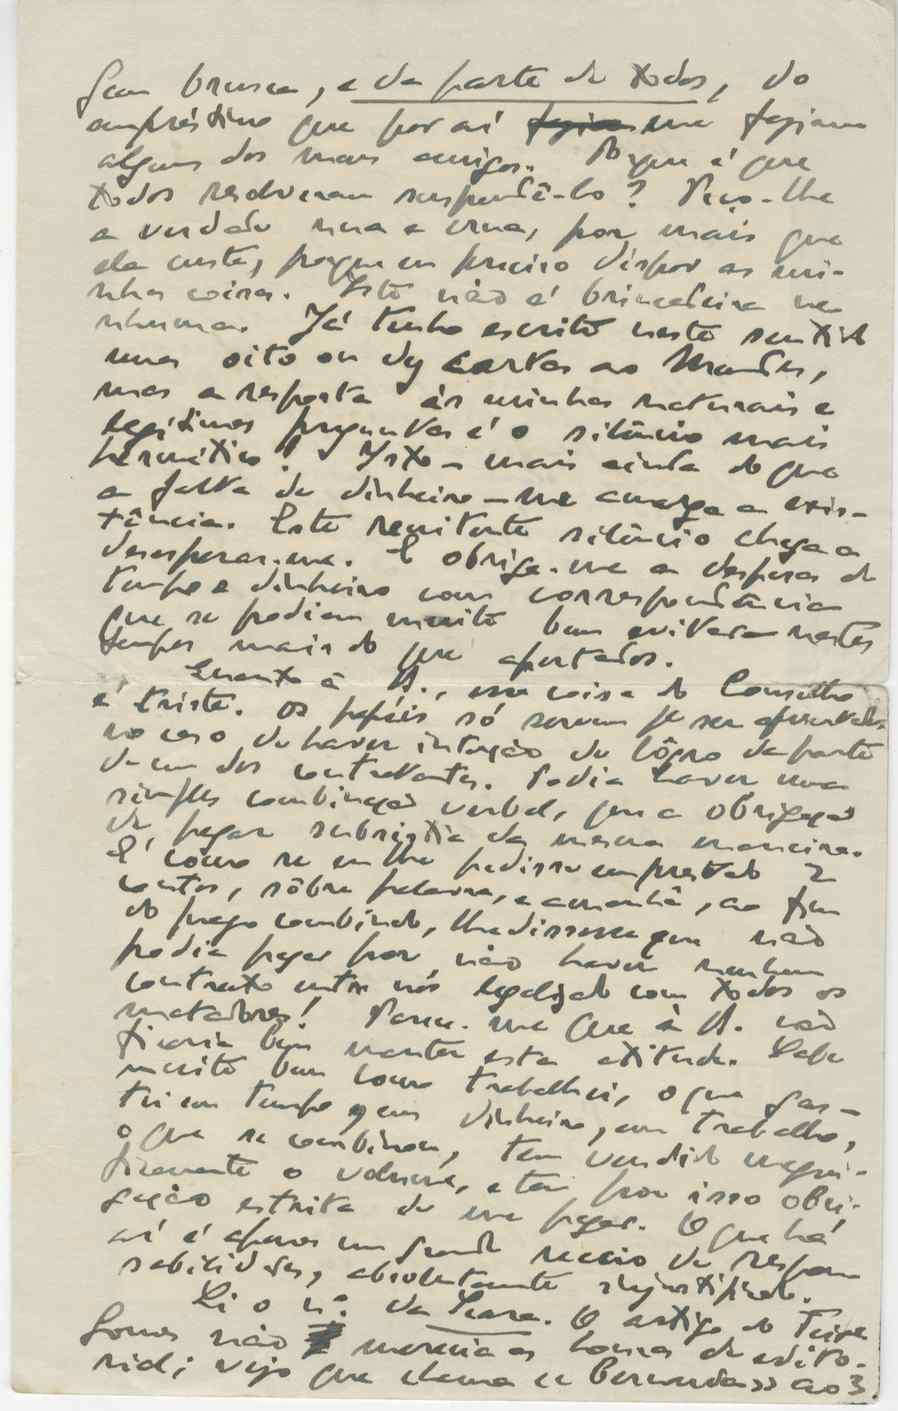 gem brusca, e da parte de todos, do
empréstimo que por aí me faziam
alguns dos meus amigos. Porque é que
todos resolveram suspendê-lo? Peço-lhe
a verdade nua e crua, por mais que
ela custe, porque eu preciso dispor as mi-
nhas coisas. Isto não é brincadeira ne
nhuma. Já tenho escrito neste sentido
umas oito ou dez cartas ao Mendes,
mas a resposta às minhas naturais e
legítimas preguntas é o silêncio mais
hermético! Isto - mais ainda do que
a falta de dinheiro - me amarga a exis-
tência. Este renitente silêncio chega a
desesperar-me. E obriga-me a despesas de
tempo e dinheiro com correspondência
que se podiam muito bem evitar nestes
tempos mais do que apertados.
Quanto à A., essa coisa do Conselho
é triste. Os papéis só servem p.ª ser apresentados
no caso de haver intenção de lôgro da parte
de um dos contratantes. Podia haver uma
simples combinação verbal, que a obrigação
de pagar subsistia da mesma maneira.
É como se eu lhe pedisse emprestado 2
contos, sôbre palavra, e amanhã, ao fim
do prazo combinado, lhe dissesse que não
podia pagar por não haver nenhum
contrato entre nós legalizado com todos os
matadores! Parece-me que à A. não
ficaria bem manter esta atitude. Sabe
muito bem como trabalhei, o que gas-
tei em tempo e em dinheiro, em trabalho,
o que se combinou, tem vendido magni-
ficamente o volume, e tem por isso obri-
gação estrita de me pagar. O que há
aí é apenas um grande receio de respon
sabilidades, absolutamente injustificado.
Li o n.º da Seara. O artigo do Teix.ª
Gomes não merecia as honras de edito-
rial; vejo que chama ao Bernardes ao 3